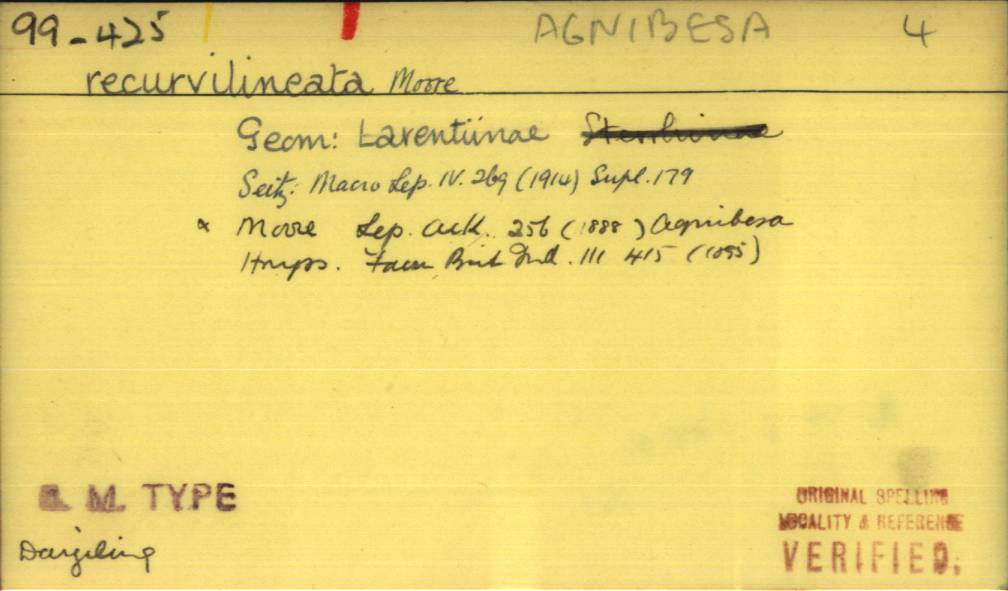 99-425 AGNIBESA 4
recurvilineata Moore
Geom: Larentiinae Sterrhinae
Seitz: Macro Lep. IV. 269 (1914) Supl. 179
α Moore Lep. Atk. 256 (1888) Agnibesa
Hmps. Faun Brit Ind. III 415 (1895)
B. M. TYPE
Darjiling
ORIGINAL SPELLING
LOCALITY & REFERENCE
VERIFIED.